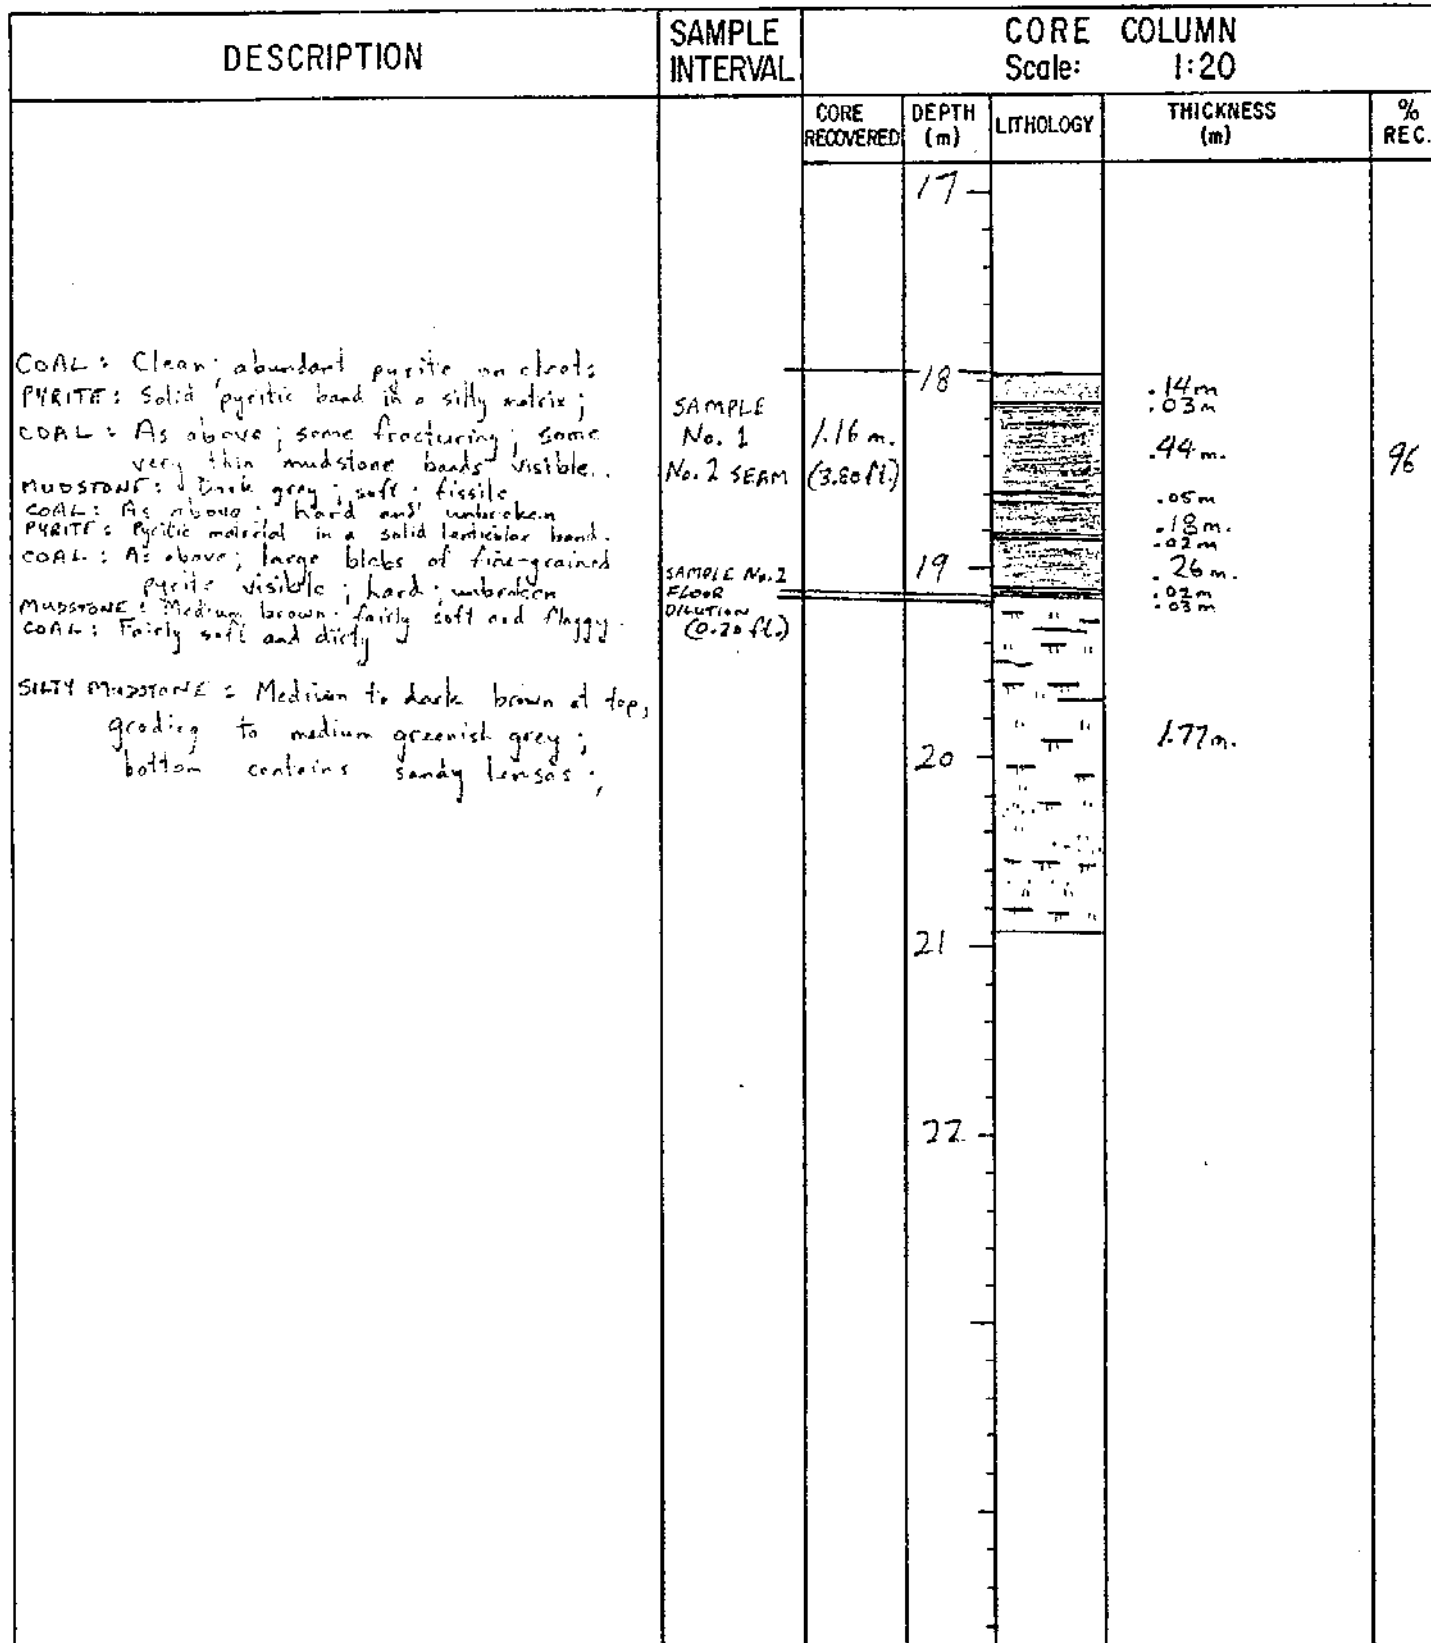 DESCRIPTION
SAMPLE INTERVAL
CORE COLUMN
Scale: 1:20
CORE RECOVERED
DEPTH (m)
LITHOLOGY
THICKNESS (m)
% REC.
COAL: Clean; abundant pyrite on cleats
PYRITE: Solid pyritic band in a silty matrix;
COAL: As above; some fracturing; some
very thin mudstone bands visible.
MUDSTONE: Dark grey; soft; fissile
COAL: As above; hard and unbroken
PYRITE: Pyritic material in a solid lenticular band.
COAL: As above; large blebs of fine-grained
pyrite visible; hard; unbroken
MUDSTONE: Medium brown; fairly soft and flaggy.
COAL: Fairly soft and dirty
SILTY MUDSTONE: Medium to dark brown at top,
grading to medium greenish grey;
bottom contains sandy lenses;
SAMPLE
No. 1
No. 2 SEAM
SAMPLE No. 2
FLOOR
DILUTION
(0.20 ft.)
1.16 m.
(3.80 ft.)
17
18
19
20
21
22
.14m
.03m
.44m.
.05m
.18m.
.02m
.26m.
.02m
.03m
1.77m.
96